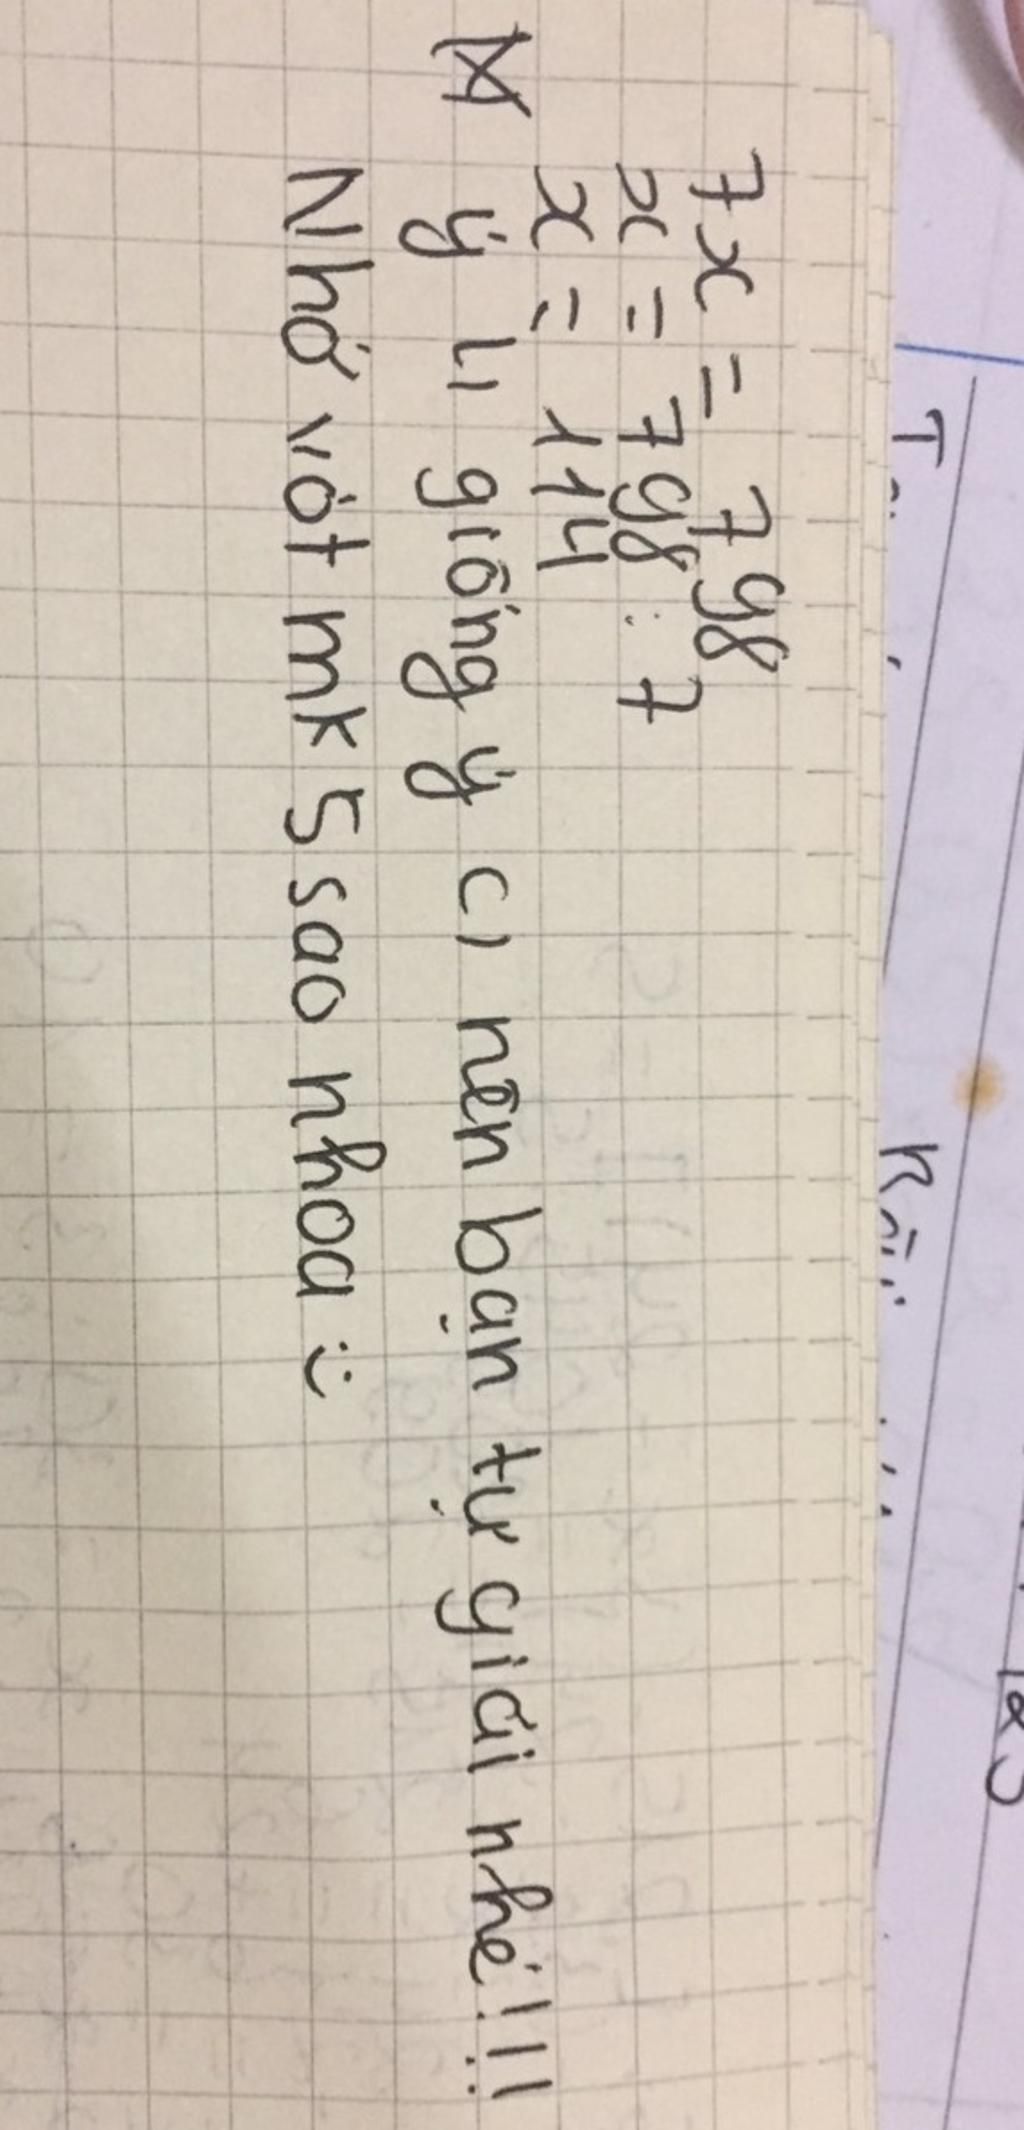 7x = 798
x = 798 : 7
x = 114
ý 4 giống ý c, nên bạn tự giải nhé!!!
Nhớ vót mk 5 sao nhoa :)